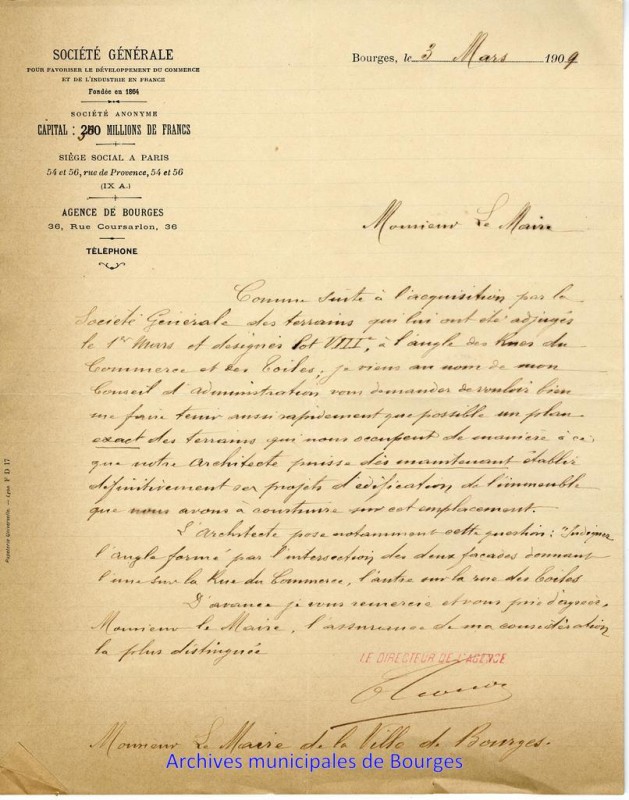 SOCIÉTÉ GÉNÉRALE
POUR FAVORISER LE DÉVELOPPEMENT DU COMMERCE
ET DE L'INDUSTRIE EN FRANCE
Fondée en 1864
SOCIÉTÉ ANONYME
CAPITAL : 350 MILLIONS DE FRANCS
SIÈGE SOCIAL A PARIS
54 et 56, rue de Provence, 54 et 56
(IX A.)
AGENCE DE BOURGES
36, Rue Coursarlon, 36
TÉLÉPHONE
Bourges, le 3 Mars 1909
Monsieur Le Maire
Comme suite à l'acquisition par la
Société Générale des terrains qui lui ont été adjugés
le 1er Mars et désignés lot VIII, à l'angle des Rues du
Commerce et des Toiles, je viens au nom de mon
Conseil d'administration vous demander de vouloir bien
me faire tenir aussi rapidement que possible un plan
exact des terrains qui nous occupent de manière à ce
que notre Architecte puisse dès maintenant établir
définitivement ses projets d'édification de l'immeuble
que nous avons à construire sur cet emplacement.
L'Architecte pose notamment cette question : "Indiquer
l'angle formé par l'intersection des deux façades donnant
l'une sur la Rue du Commerce, l'autre sur la rue des Toiles
D'avance je vous remercie et vous prie d'agréer,
Monsieur le Maire, l'assurance de ma considération
la plus distinguée
LE DIRECTEUR DE L'AGENCE
Monsieur Le Maire de la Ville de Bourges.
Archives municipales de Bourges
Papeterie Universelle. — Lyon F D 17